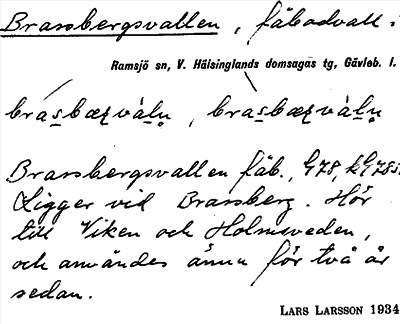 Brassbergsvallen, fäbodvall:
Ramsjö sn, V. Hälsinglands domsagas tg, Gävleb. l.
brasbærvàln̥, brasbærvàln̥
Brassbergsvallen fäb., G78, kG78s.
Ligger vid Brassberg. Hör
till Viken och Holmsveden,
och användes ännu för två år
sedan.
LARS LARSSON 1934